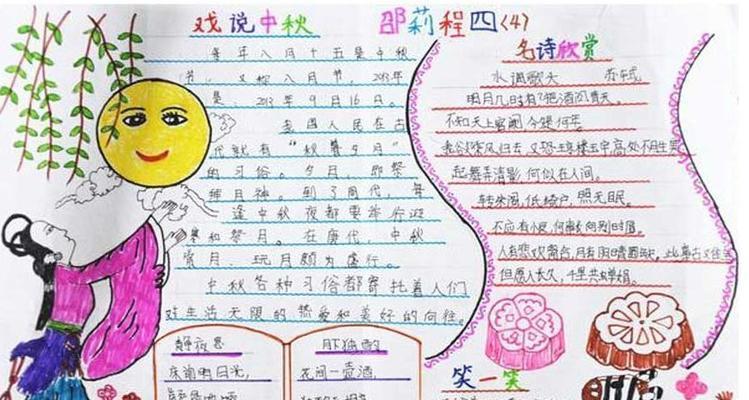 戏说中秋 邵莉程四(4)
每年八月十五是中秋
节，又称八月节，2013年
是，2013年9月16日。
我国人民在古
代就有“秋暮夕月”
的习俗。夕月，即祭
拜月神。到了周代，每
逢中秋夜都要举行迎
寒和祭月。在唐代，中秋
赏月、玩月颇为盛行。
中秋各种习俗都寄托着人们
对生活无限的热爱和美好的向往。
名诗欣赏
水调歌头 苏轼
明月几时有?把酒问青天。
不知天上宫阙 今夕是何年。
我欲乘风归去 又恐琼楼玉宇 高处不胜寒
起舞弄清影 何似在人间。
转朱阁，低绮户，照无眠。
不应有恨，何事长向别时圆。
人有悲欢离合，月有阴晴圆缺，此事古
但愿人长久，千里共婵娟。
静夜思
床前明月光，
月独酌
花间一壶酒，
笑一笑